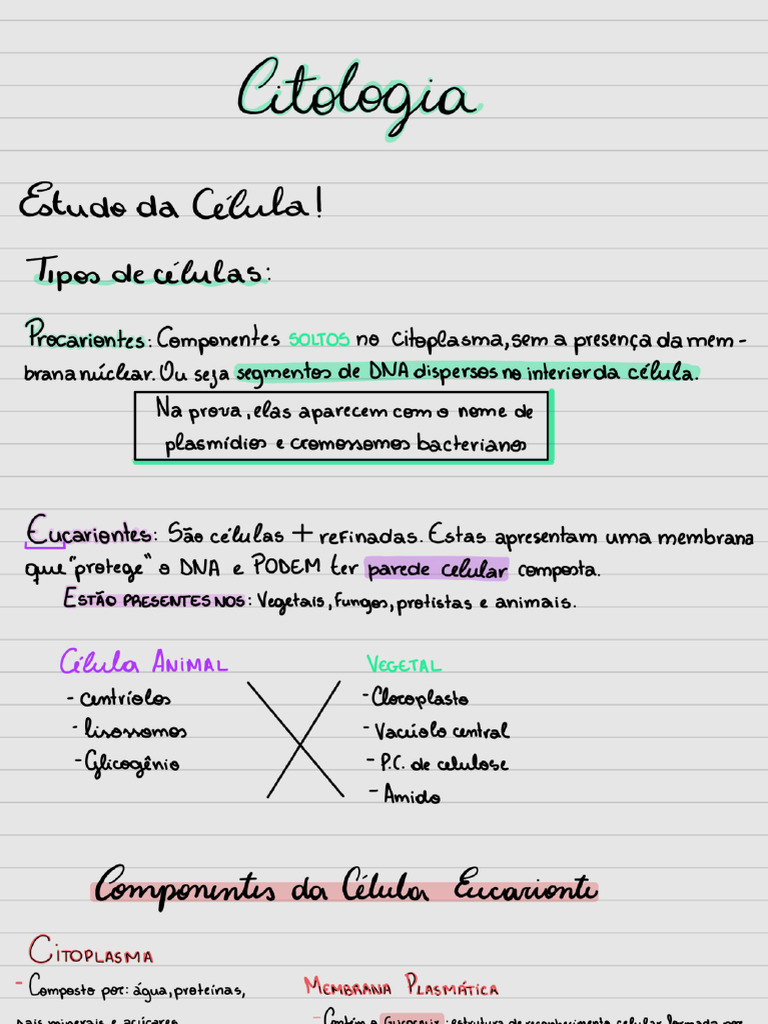 Citologia
Estudo da Célula!
Tipos de células:
Procariontes: Componentes SOLTOS no citoplasma, sem a presença da mem-
brana núclear. Ou seja segmentos de DNA dispersos no interior da célula.
Na prova, elas aparecem com o nome de
plasmídios e cromossomos bacterianos
Eucariontes: São células + refinadas. Estas apresentam uma membrana
que "protege" o DNA e PODEM ter parede celular composta.
ESTÃO PRESENTES NOS: Vegetais, fungos, protistas e animais.
Célula ANIMAL
- centríolos
- lisossomos
- Glicogênio
VEGETAL
- Cloroplasto
- Vacúolo central
- P.C. de celulose
- Amido
Componentes da Célula Eucarionte
CITOPLASMA
- Composto por: água, proteínas,
sais minerais e açúcares
MEMBRANA PLASMÁTICA
- Contém o GLICOCÁLIX: estrutura de reconhecimento celular formada por